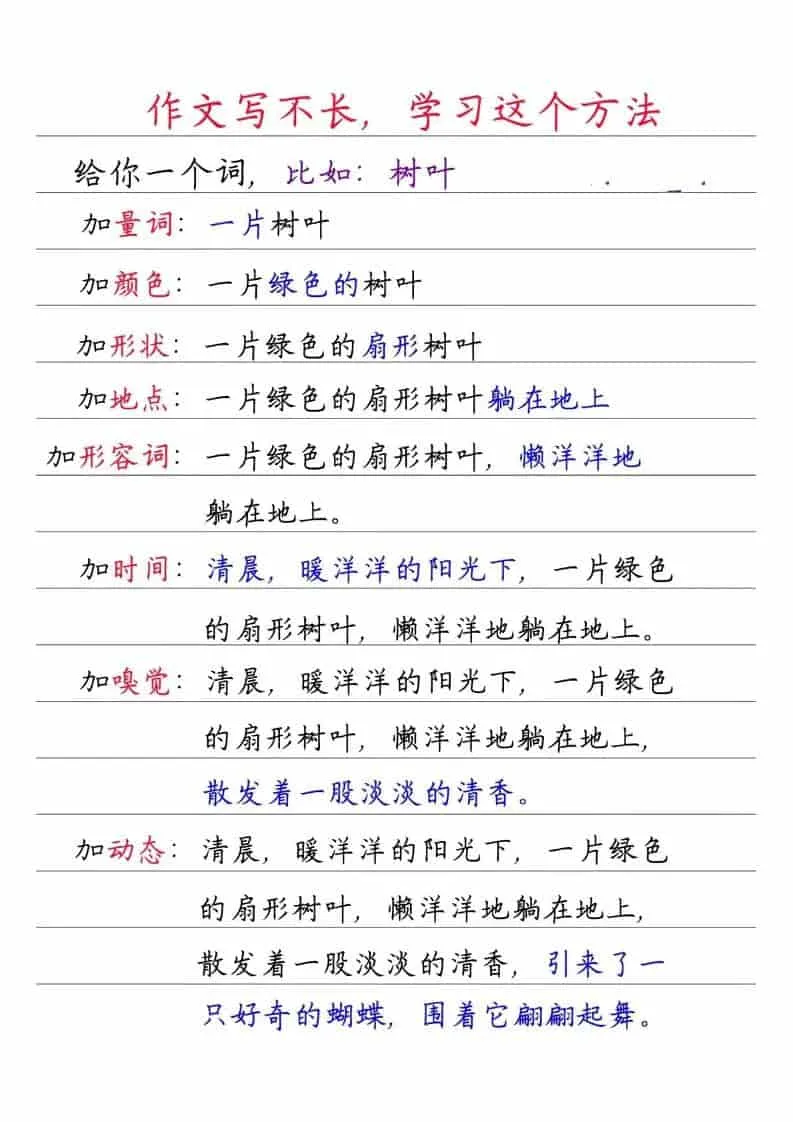 作文写不长，学习这个方法
给你一个词，比如：树叶
加量词：一片树叶
加颜色：一片绿色的树叶
加形状：一片绿色的扇形树叶
加地点：一片绿色的扇形树叶躺在地上
加形容词：一片绿色的扇形树叶，懒洋洋地
躺在地上。
加时间：清晨，暖洋洋的阳光下，一片绿色
的扇形树叶，懒洋洋地躺在地上。
加嗅觉：清晨，暖洋洋的阳光下，一片绿色
的扇形树叶，懒洋洋地躺在地上，
散发着一股淡淡的清香。
加动态：清晨，暖洋洋的阳光下，一片绿色
的扇形树叶，懒洋洋地躺在地上，
散发着一股淡淡的清香，引来了一
只好奇的蝴蝶，围着它翩翩起舞。